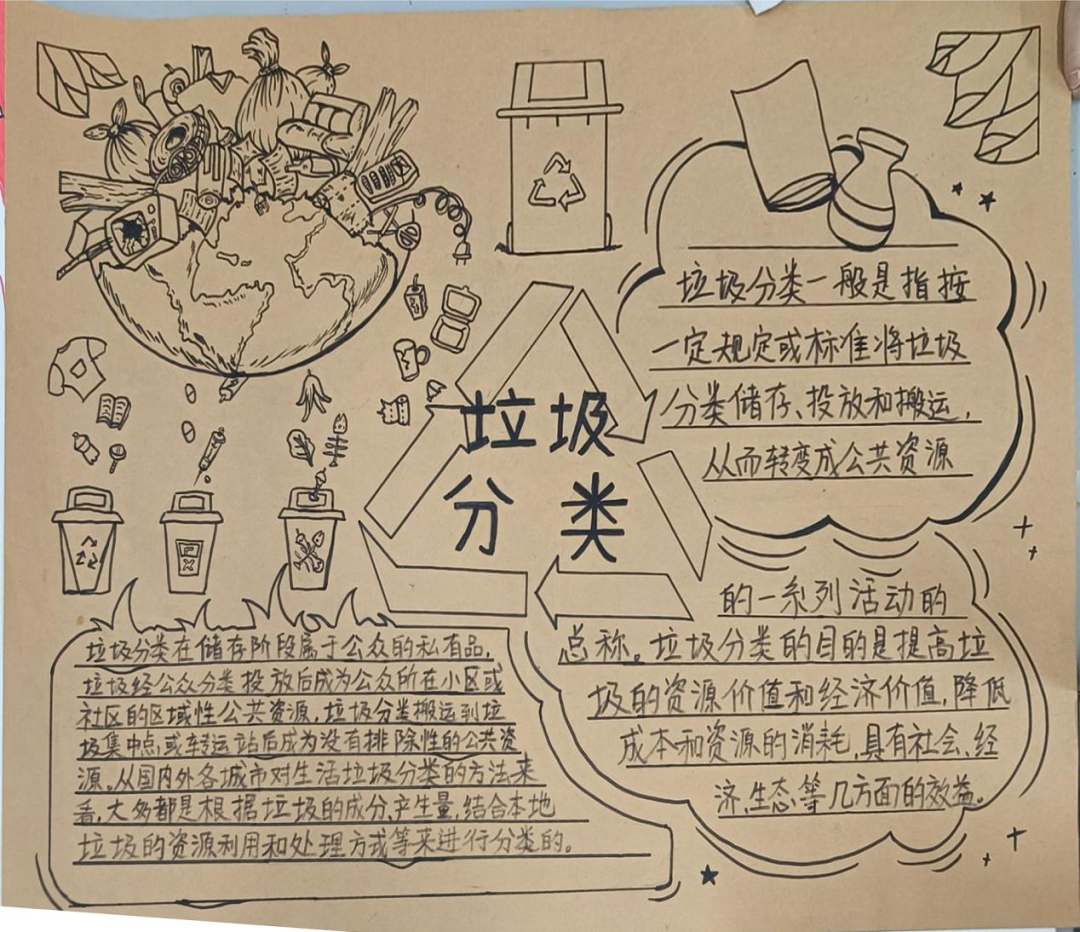 垃圾
分类
垃圾分类一般是指按
一定规定或标准将垃圾
分类储存、投放和搬运,
从而转变成公共资源
的一系列活动的
总称。垃圾分类的目的是提高垃
圾的资源价值和经济价值,降低
成本和资源的消耗,具有社会、经
济、生态等几方面的效益。
垃圾分类在储存阶段属于公众的私有品,
垃圾经公众分类投放后成为公众所在小区或
社区的区域性公共资源,垃圾分类搬运到垃
圾集中点或转运站后成为没有排除性的公共资
源。从国内外各城市对生活垃圾分类的方法来
看,大多都是根据垃圾的成分、产生量,结合本地
垃圾的资源利用和处理方式等来进行分类的。